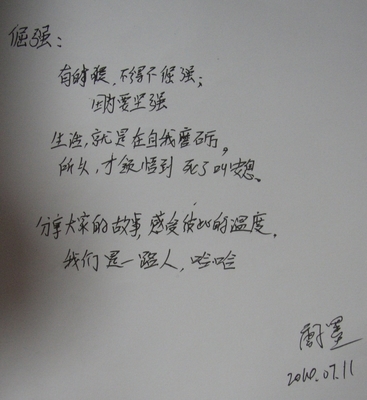 倔强:
有时候,不得不倔强;
因为要坚强
生活,就是在自我磨砺。
所以,才领悟到 死了叫安息。
分享大家的故事,感受彼此的温度.
我们是一路人,哈哈
2010.07.11